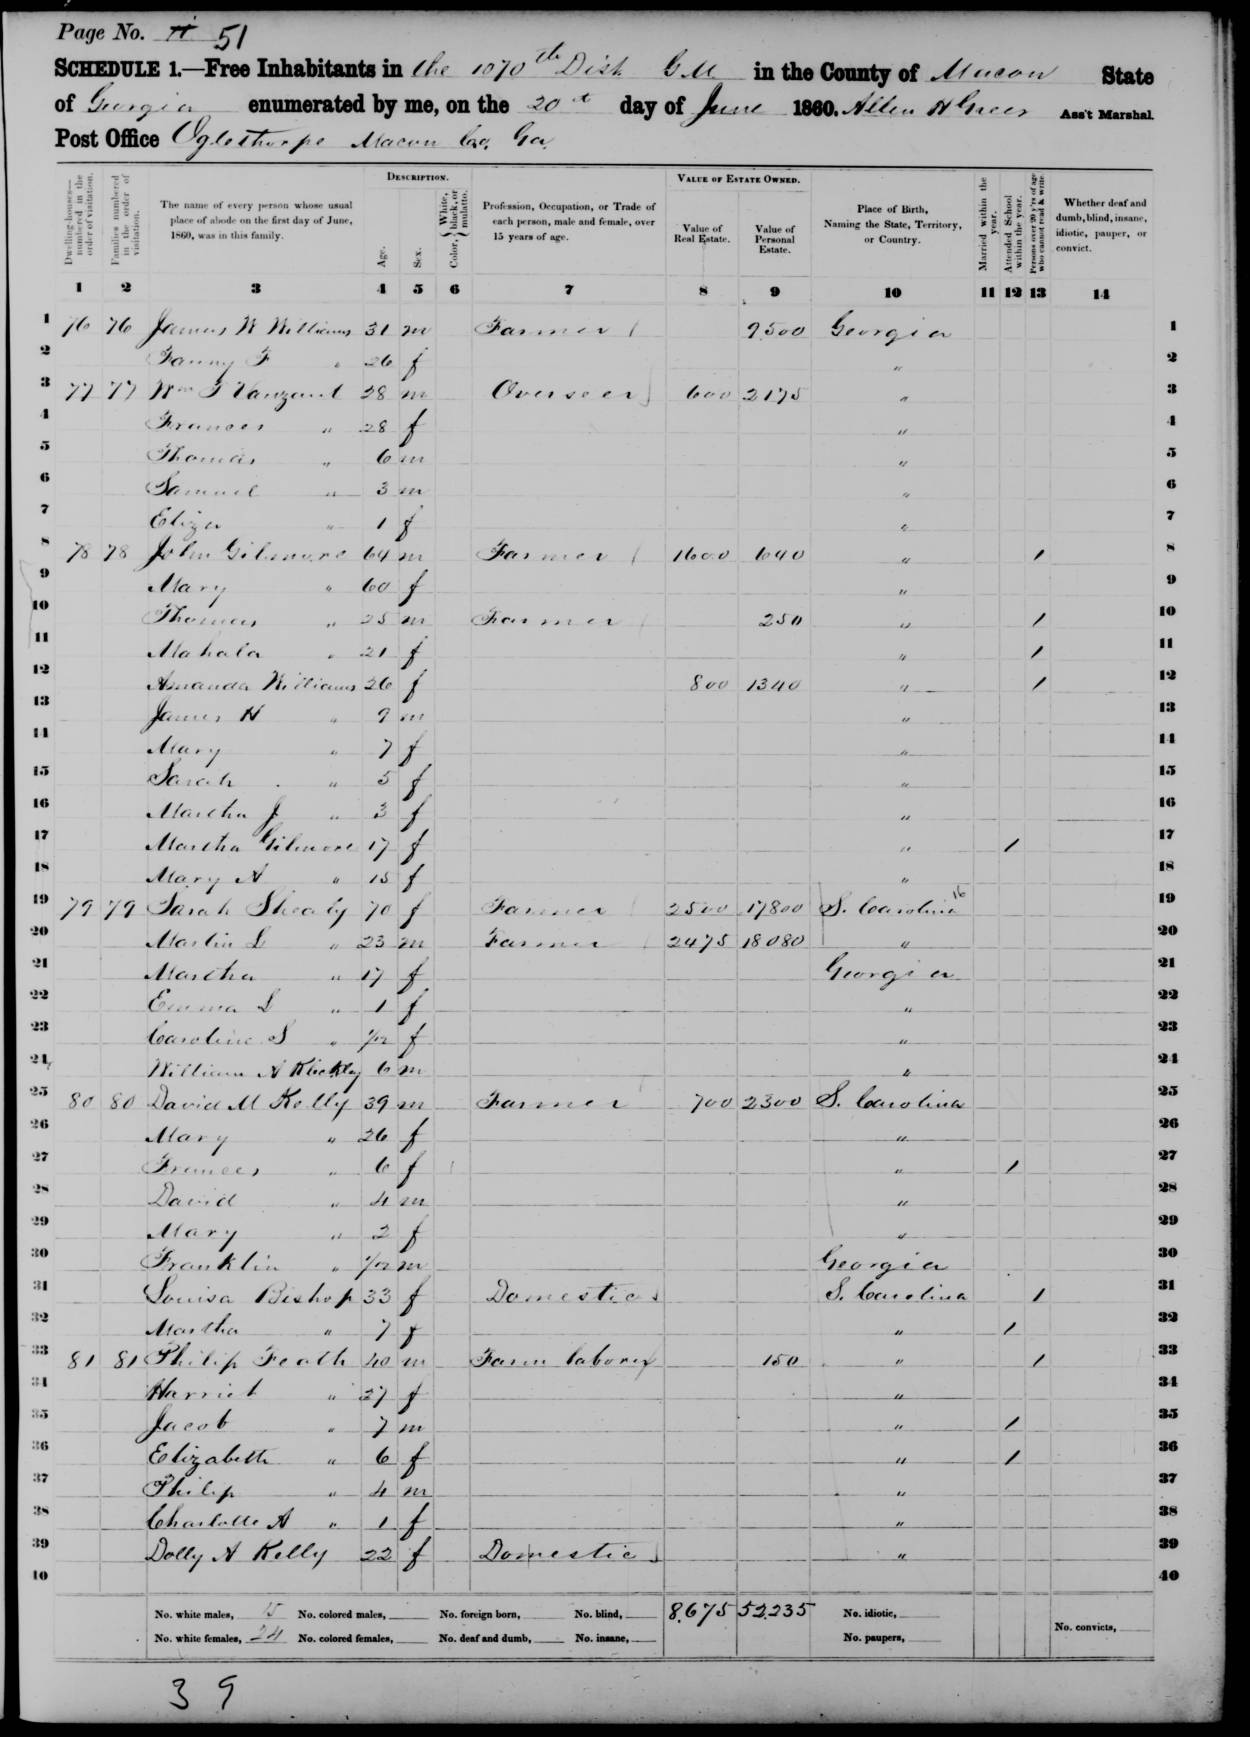 Page No. 11 51
SCHEDULE 1.—Free Inhabitants in the 1070th Dist G M in the County of Macon State
of Georgia enumerated by me, on the 20th day of June 1860. Allen H Greer Ass't Marshal.
Post Office Oglethorpe Macon Co. Ga.
DESCRIPTION. VALUE OF ESTATE OWNED.
Dwelling-houses—numbered in the order of visitation. Families numbered in the order of visitation. The name of every person whose usual place of abode on the first day of June, 1860, was in this family. Age. Sex. Color, { White, black, or mulatto. Profession, Occupation, or Trade of each person, male and female, over 15 years of age. Value of Real Estate. Value of Personal Estate. Place of Birth, Naming the State, Territory, or Country. Married within the year. Attended School within the year. Persons over 20 y'rs of age who cannot read & write. Whether deaf and dumb, blind, insane, idiotic, pauper, or convict.
1 2 3 4 5 6 7 8 9 10 11 12 13 14
1 76 76 James W Williams 31 m Farmer 9500 Georgia 1
2 Fanny F " 26 f " 2
3 77 77 Wm T Vanzant 28 m Overseer 600 2175 " 3
4 Frances " 28 f " 4
5 Thomas " 6 m " 5
6 Samuel " 3 m " 6
7 Eliza " 1 f " 7
8 78 78 John Gilmore 64 m Farmer 1600 640 " / 8
9 Mary " 60 f " 9
10 Thomas " 25 m Farmer 250 " / 10
11 Mahala " 21 f " / 11
12 Amanda Williams 26 f 800 1340 " / 12
13 James H " 9 m " 13
14 Mary " 7 f " 14
15 Sarah " 5 f " 15
16 Martha J " 3 f " 16
17 Martha Gilmore 17 f " / 17
18 Mary A " 15 f " 18
19 79 79 Sarah Shealy 70 f Farmer 2500 17800 S. Carolina 16 19
20 Martin L " 23 m Farmer 2475 18080 " 20
21 Martha " 17 f Georgia 21
22 Emma L " 1 f " 22
23 Caroline S " 1/12 f " 23
24 William A 6 m " 24
25 80 80 David M Kelly 39 m Farmer 700 2300 S. Carolina 25
26 Mary " 26 f " 26
27 Frances " 6 f " / 27
28 David " 4 m " 28
29 Mary " 2 f " 29
30 Franklin " 1/12 m Georgia 30
31 Louisa Bishop 33 f Domestic S. Carolina / 31
32 Martha " 7 f " / 32
33 81 81 Philip Feath 40 m Farm laborer 150 " / 33
34 Harriet " 27 f " 34
35 Jacob " 7 m " / 35
36 Elizabeth " 6 f " / 36
37 Philip " 4 m " 37
38 Charlotte A " 1 f " 38
39 Dolly A Kelly 22 f Domestic " 39
40 40
No. white males, 15 No. colored males, No. foreign born, No. blind, 8,675 52,235 No. idiotic,
No. white females, 24 No. colored females, No. deaf and dumb, No. insane, No. paupers, No. convicts,
39